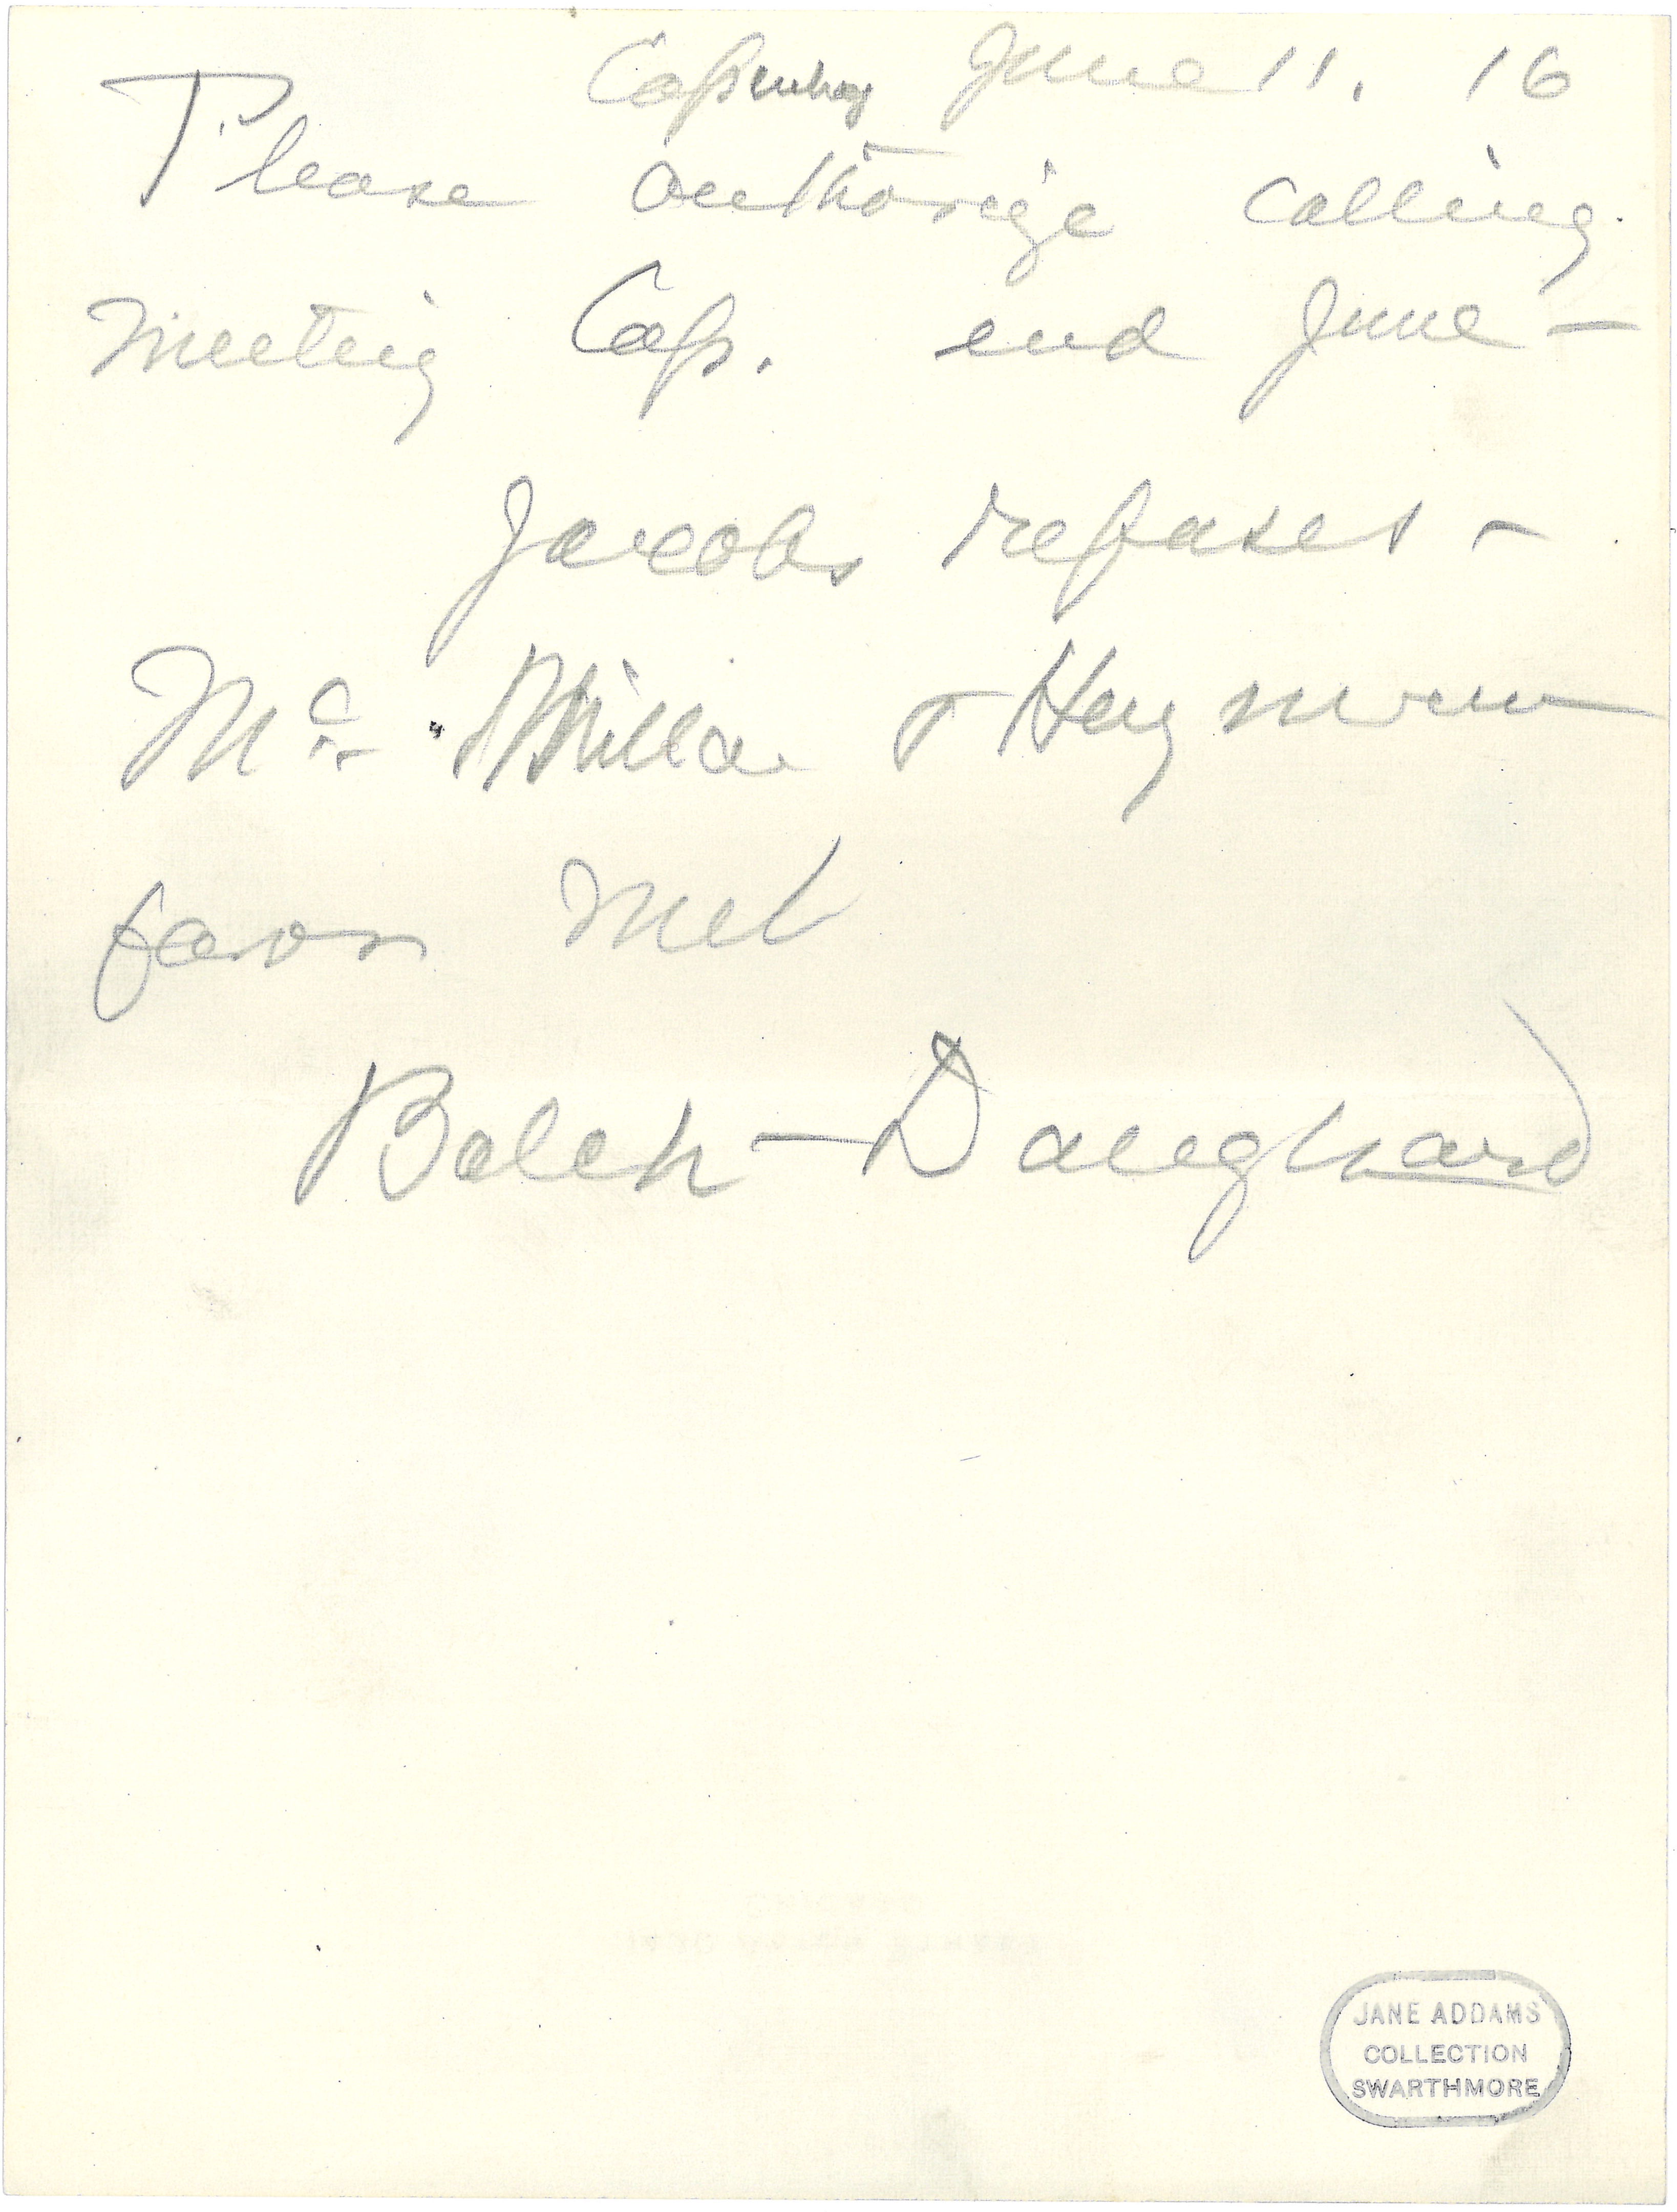 Copenhag June 11. 16
Please authorize calling
meeting Cop. end June —
Jacobs refuses —
Mc. Milla & Heymann
favor
Balch — Daugaard
JANE ADDAMS
COLLECTION
SWARTHMORE